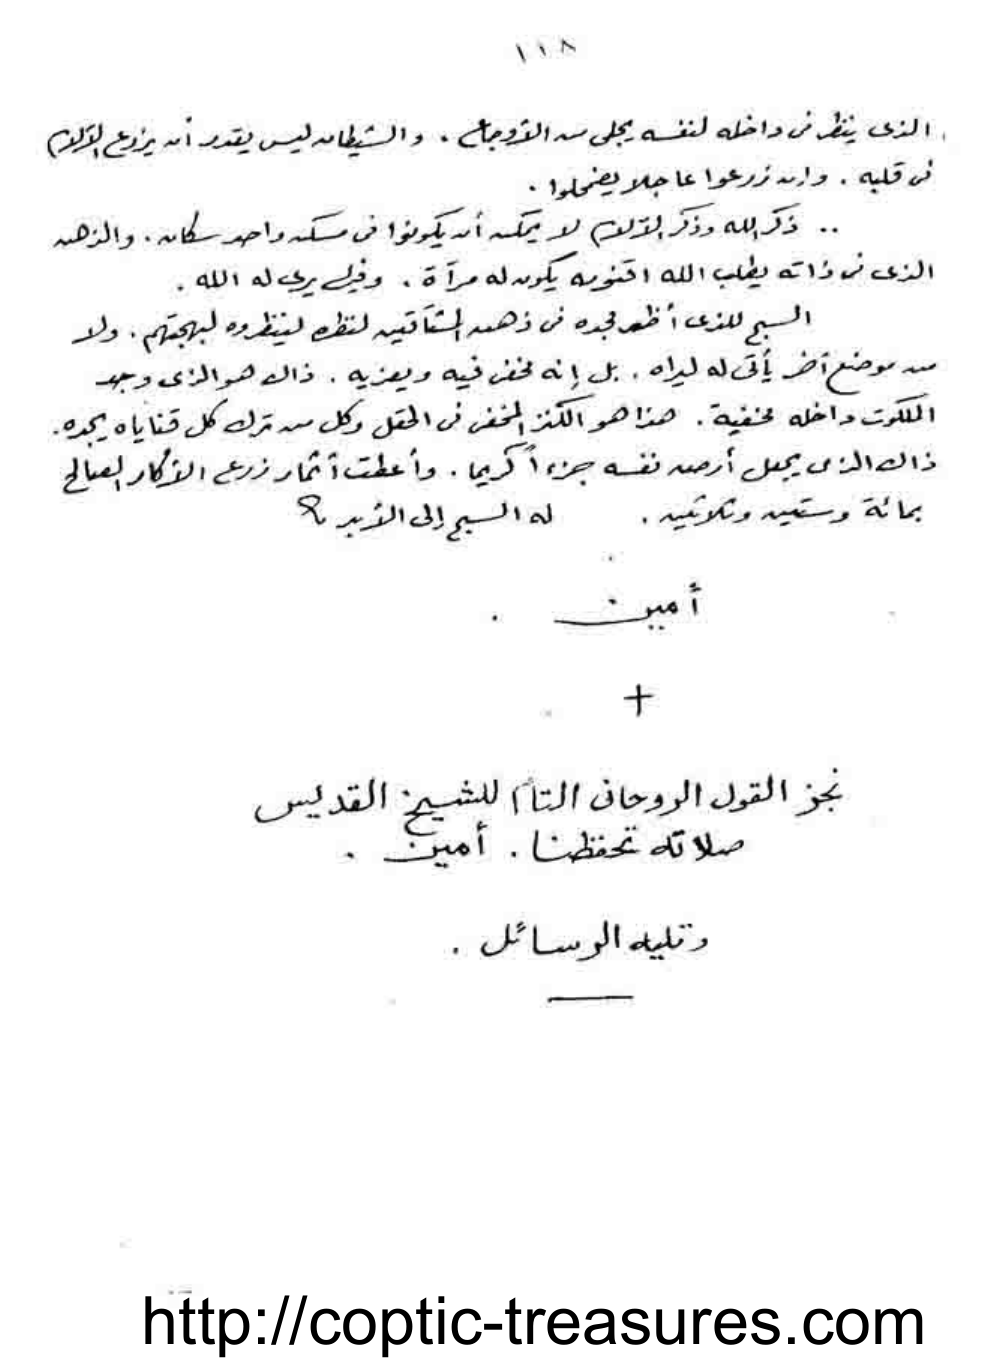 ١١٨
الذى ينظر فى داخله لنفسه يجلى من الأوجاع . والشيطان ليس يقدر أن يزرع الآلام
فى قلبه . وإن زرعوا عاجلا يضمحلوا .
.. ذكر الله وذكر الآلام لا يمكن أن يكونوا فى مسكن واحد سكان . والذهن
الذى فى ذاته يطلب الله اقنومه يكون له مرآة . وفيه يرى له الله .
السبح للذى أظهر مجده فى ذهن المشتاقين لنظره لينظروه لبهجتهم . ولا
من موضع آخر يأتى له ليراه . بل إنه مخفى فيه ويعزيه . ذاك هو الذى وجد
الملكوت داخله مخفية . هذا هو الكنز المخفى فى الحقل وكل من ترك كل قناياه يجده .
ذاك الذى يجعل أرض نفسه جزءاً كريما . وأعطت أثمار زرع الأكار الصالح
بمائة وستين وثلاثين . له السبح إلى الأبد
أمين .
+
نجز القول الروحانى التام للشيخ القديس
صلاته تحفظنا . أمين .
وتليه الرسائل .
http://coptic-treasures.com